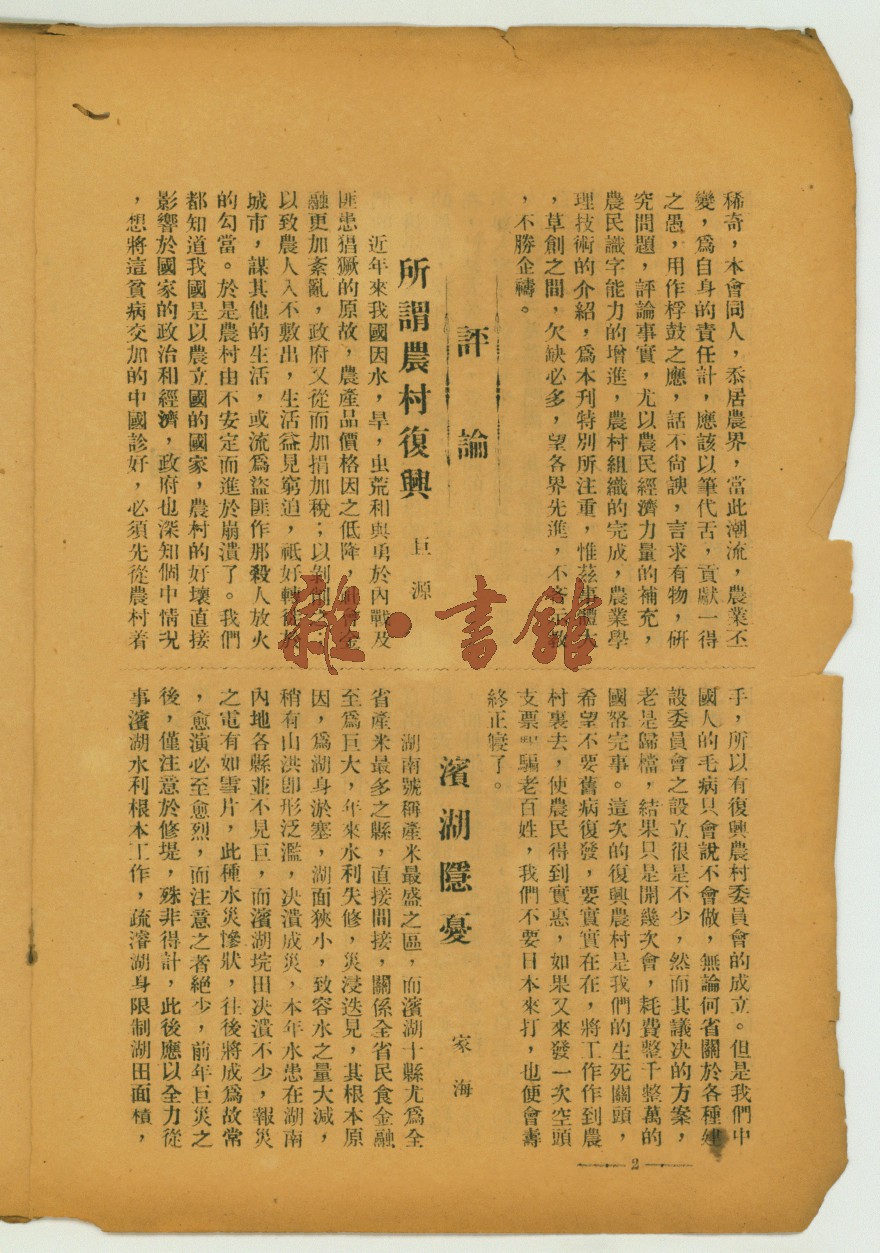 稀奇，本會同人，忝居農界，當此潮流，農業丕
變，爲自身的責任計，應該以筆代舌，貢獻一得
之愚，用作桴鼓之應，話不尙諛，言求有物，研
究問題，評論事實，尤以農民經濟力量的補充，
農民識字能力的增進，農村組織的完成，農業學
理技術的介紹，爲本刊特別所注重，惟茲事體大
，草創之間，欠缺必多，望各界先進，不吝示敎
，不勝企禱。
評論
所謂農村復興 巨源
近年來我國因水，旱，虫荒和與勇於內戰及
匪患猖獗的原故，農產品價格因之低降，社會金
融更加紊亂，政府又從而加捐加稅；以剝削之
以致農人入不敷出，生活益見窮迫，祗好轉徙於
城市，謀其他的生活，或流爲盜匪作那殺人放火
的勾當。於是農村由不安定而進於崩潰了。我們
都知道我國是以農立國的國家，農村的好壞直接
影響於國家的政治和經濟，政府也深知個中情況
，想將這貧病交加的中國診好，必須先從農村着
手，所以有復興農村委員會的成立。但是我們中
國人的毛病只會說不會做，無論何省關於各種建
設委員會之設立很是不少，然而其議决的方案，
老是歸檔，結果只是開幾次會，耗費整千整萬的
國帑完事。這次的復興農村是我們的生死關頭，
希望不要舊病復發，要實實在在，將工作作到農
村裏去，使農民得到實惠，如果又來發一次空頭
支票騙老百姓，我們不要日本來打，也便會壽
終正寢了。
濱湖隱憂 家海
湖南號稱產米最盛之區，而濱湖十縣尤爲全
省產米最多之縣，直接間接，關係全省民食金融
至爲巨大，年來水利失修，災浸迭見，其根本原
因，爲湖身淤塞，湖面狹小，致容水之量大減，
稍有山洪卽形泛濫，决潰成災，本年水患在湖南
內地各縣並不見巨，而濱湖垸田决潰不少，報災
之電有如雪片，此種水災慘狀，往後將成爲故常
，愈演必至愈烈，而注意之者絕少，前年巨災之
後，僅注意於修堤，殊非得計，此後應以全力從
事濱湖水利根本工作，疏濬湖身限制湖田面積，
2
雜·書館